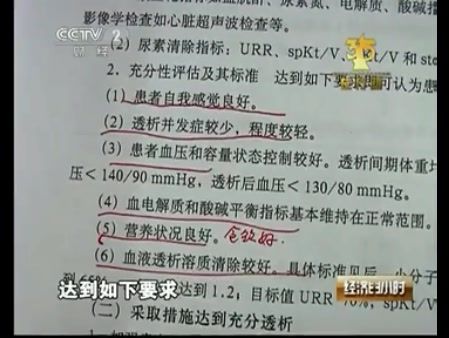 CCTV 2
财经
影像学检查如心脏超声波检查等。
(2) 尿素清除指标：URR、spKt/V、 Kt/V 和 ste
2. 充分性评估及其标准 达到如下要求即可认为患
(1) 患者自我感觉良好。
(2) 透析并发症较少，程度较轻。
(3) 患者血压和容量状态控制较好。透析间期体重
压< 140/90 mmHg，透析后血压< 130/80 mmHg。
(4) 血电解质和酸碱平衡指标基本维持在正常范围。
(5) 营养状况良好。
(6) 血液透析溶质清除较好。具体标准见后。小分子
到 65% 达到 1.2；目标值 URR 70%，spKt/V
达到如下要求
经济半小时
(二) 采取措施达到充分透析